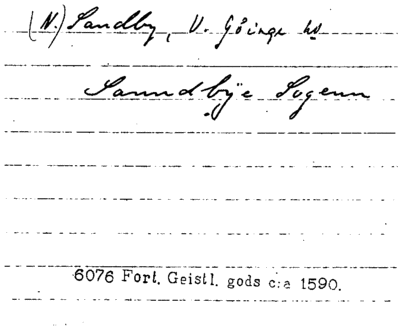 (N.) Sandby, V. Göinge hd
Sanndbÿe Sogenn
6076 Fort. Geistl. gods c:a 1590.